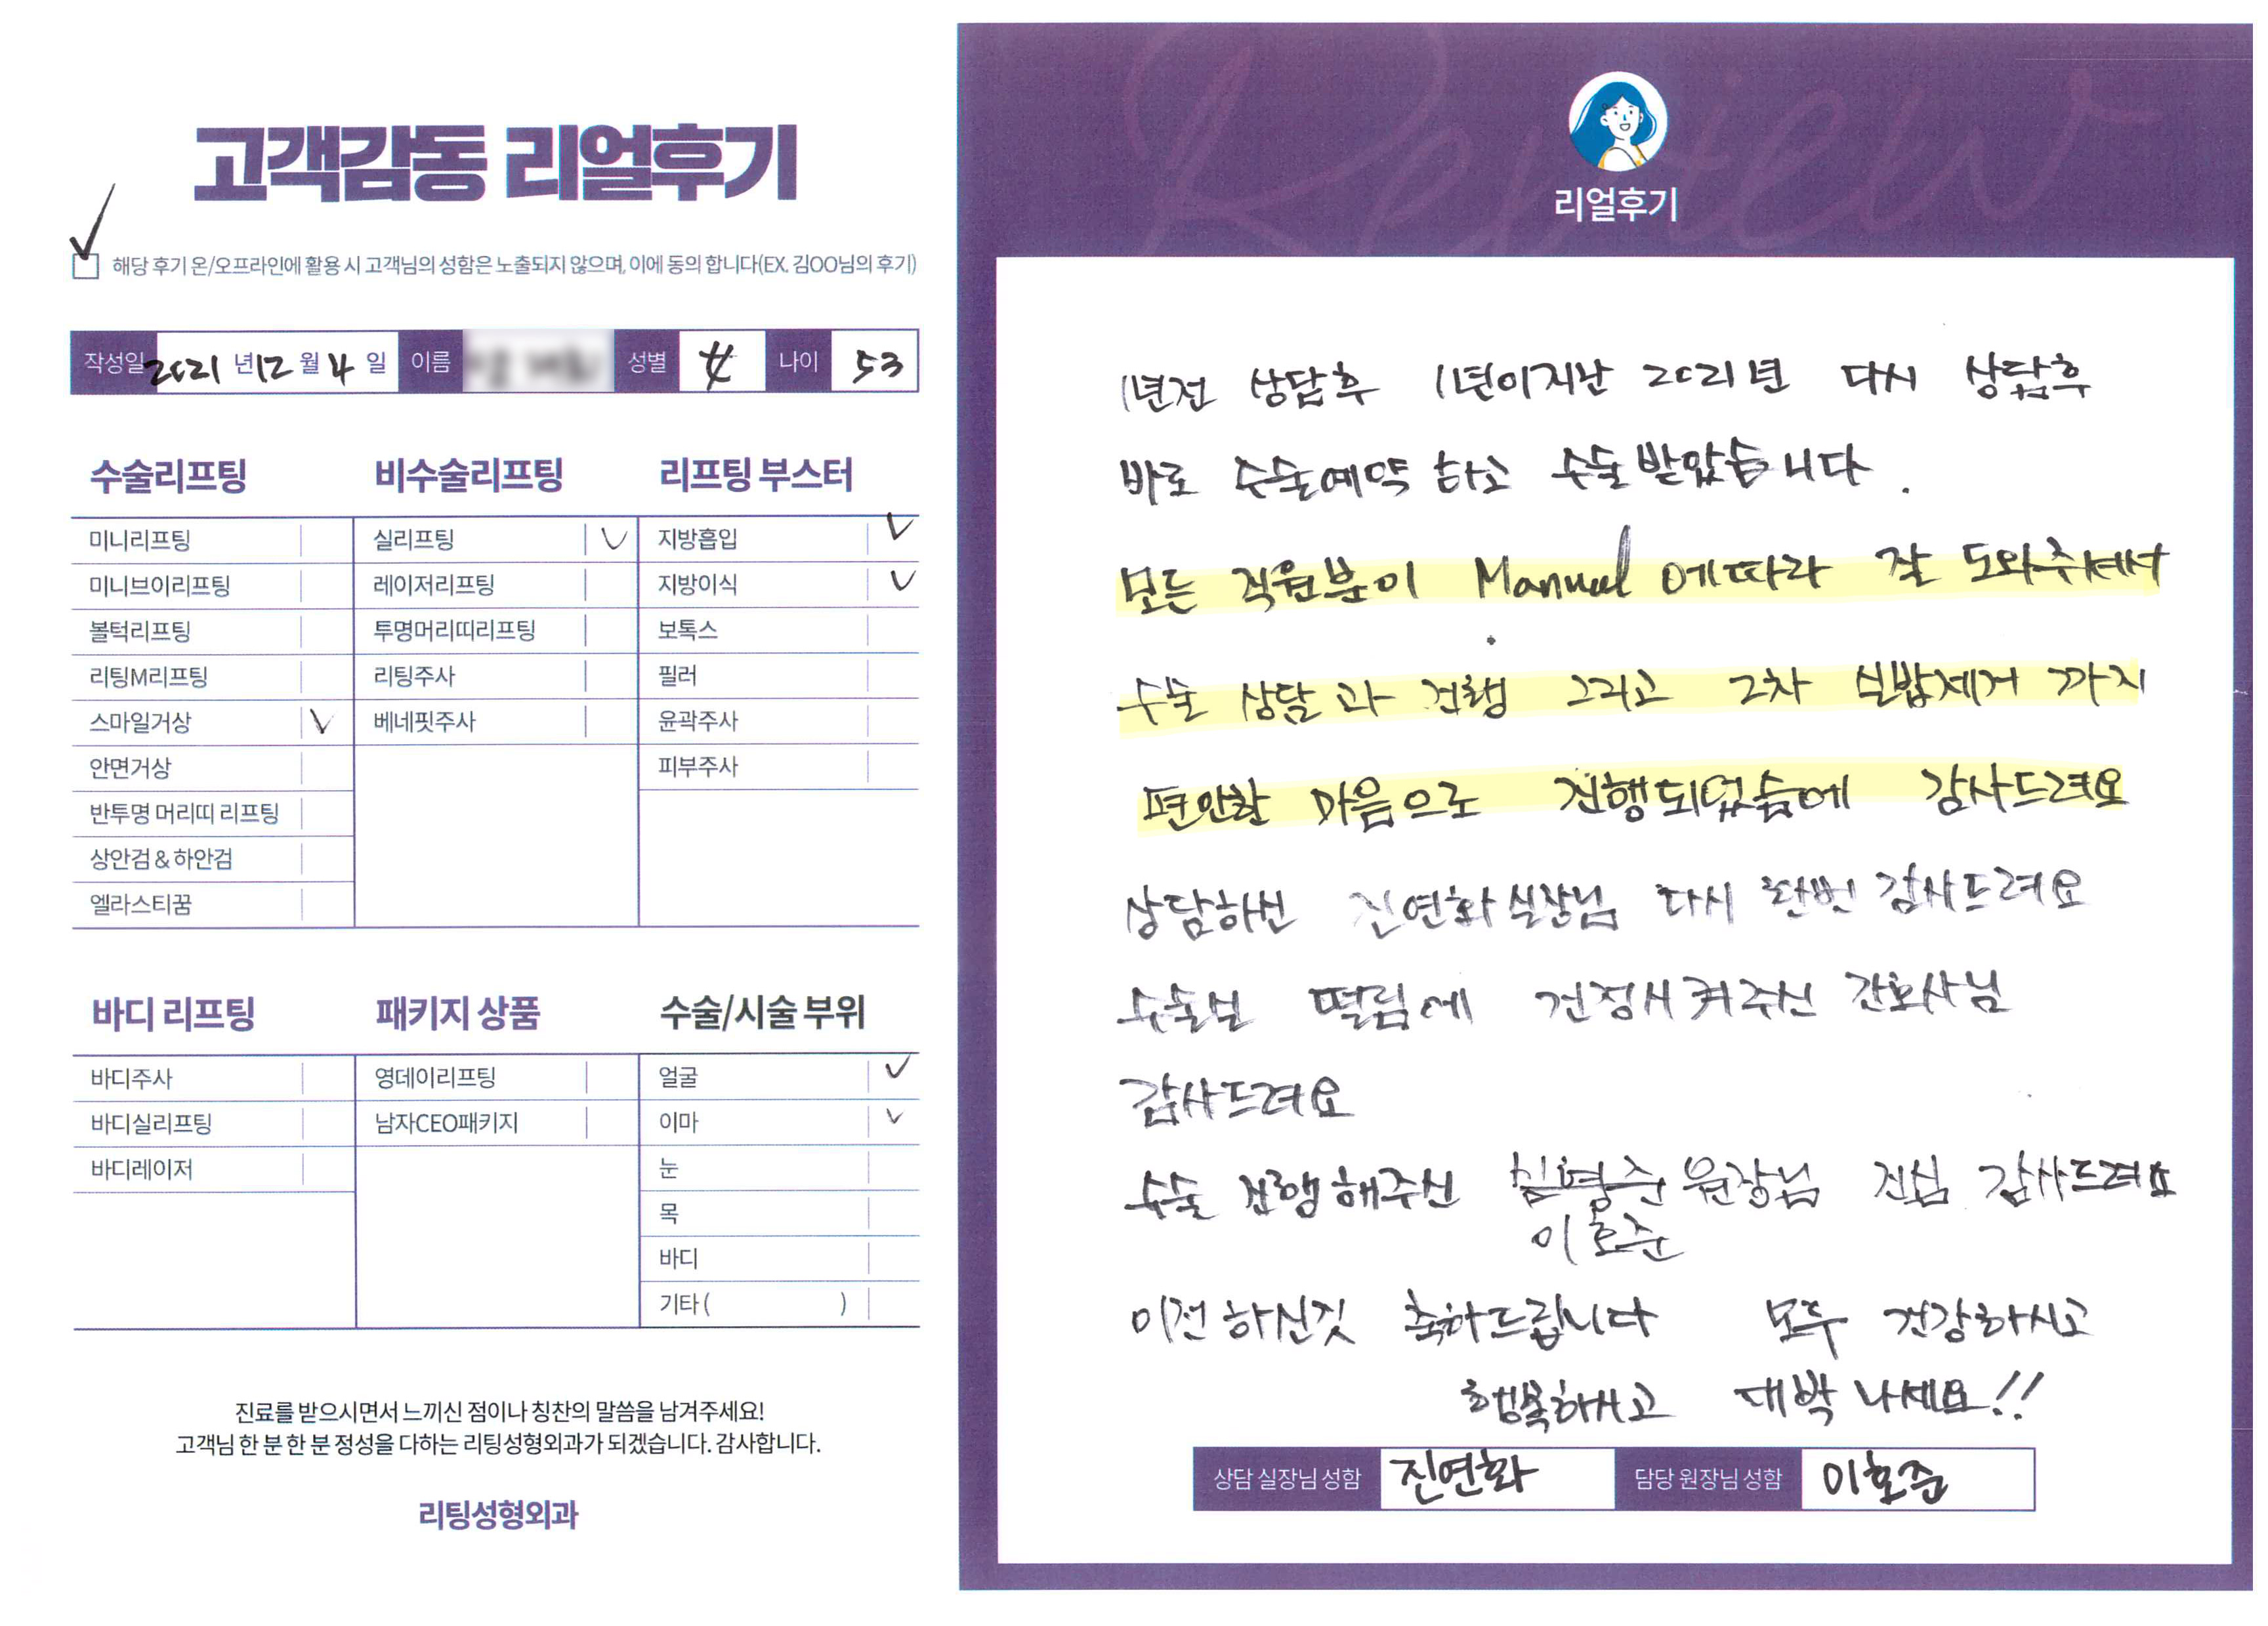 고객감동 리얼후기
해당 후기 온/오프라인에 활용 시 고객님의 성함은 노출되지 않으며, 이에 동의 합니다(EX. 김OO님의 후기)
작성일 2021 년 12 월 4 일 이름 성별 女 나이 53
수술리프팅
미니리프팅
미니브이리프팅
볼턱리프팅
리팅M리프팅
스마일거상 V
안면거상
반투명 머리띠 리프팅
상안검 & 하안검
엘라스티꿈
비수술리프팅
실리프팅 V
레이저리프팅
투명머리띠리프팅
리팅주사
베네핏주사
리프팅 부스터
지방흡입 V
지방이식 V
보톡스
필러
윤곽주사
피부주사
바디 리프팅
바디주사
바디실리프팅
바디레이저
패키지 상품
영데이리프팅
남자CEO패키지
수술/시술 부위
얼굴 V
이마 V
눈
목
바디
기타 ( )
진료를 받으시면서 느끼신 점이나 칭찬의 말씀을 남겨주세요!
고객님 한 분 한 분 정성을 다하는 리팅성형외과가 되겠습니다. 감사합니다.
리팅성형외과
Review
리얼후기
1년전 상담후 1년이지난 2021년 다시 상담후
바로 수술예약 하고 수술 받았습니다.
모든 직원분이 Manual 에따라 잘 도와주셔서
수술 상담과 진행 그리고 2차 실밥제거 까지
편안한 마음으로 진행되었슴에 감사드려요
상담하신 진연화실장님 다시 한번 감사드려요
수술날 떨림에 진정시켜주신 간호사님
감사드려요
수술 진행해주신 원장님 진심 감사드려요
이호준
이전 하신것 축하드립니다 모두 건강하시고
행복하시고 대박 나세요!!
상담 실장님 성함 진연화 담당 원장님 성함 이호준